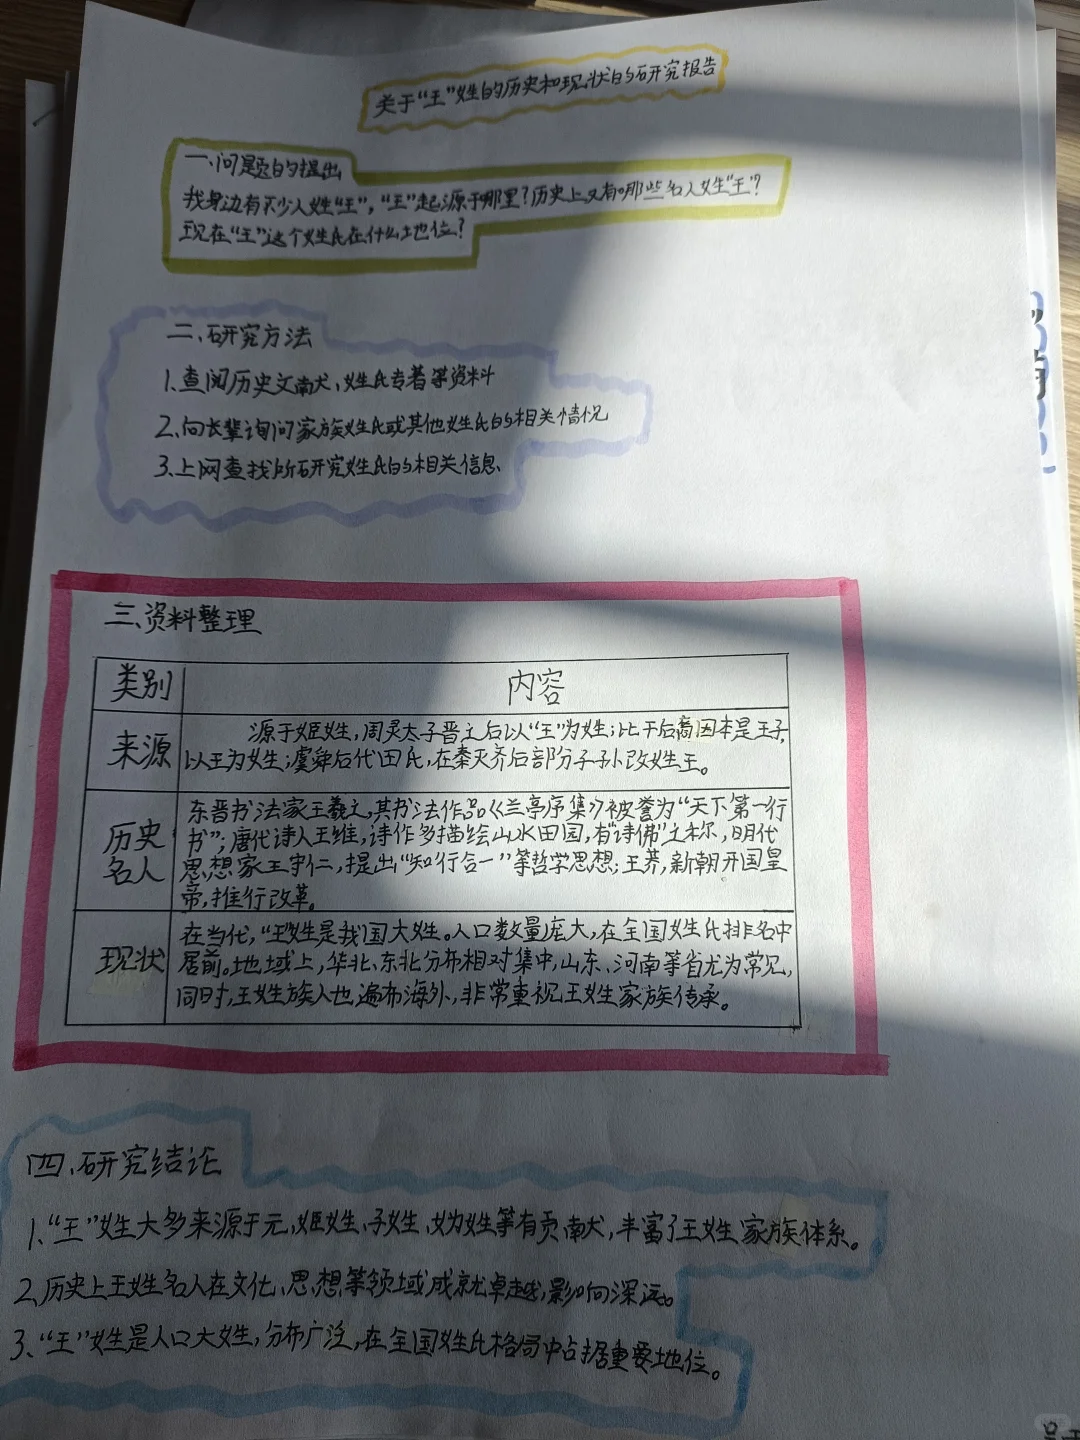 关于“王”姓的历史和现状的研究报告
一、问题的提出
我身边有不少人姓“王”，“王”起源于哪里？历史上又有哪些名人姓“王”？
现在“王”这个姓氏在什么地位？
二、研究方法
1、查阅历史文献、姓氏专著等资料
2、向长辈询问家族姓氏或其他姓氏的相关情况
3、上网查找所研究姓氏的相关信息、
三、资料整理
类别 内容
来源 源于姬姓，周灵太子晋之后以“王”为姓；比干后裔因本是王子，
以王为姓；虞舜后代田氏，在秦灭齐后部分子孙改姓王。
历史名人 东晋书法家王羲之，其书法作品《兰亭序集》被誉为“天下第一行
书”；唐代诗人王维，诗作多描绘山水田园，有“诗佛”之称，明代
思想家王守仁，提出“知行合一”等哲学思想；王莽，新朝开国皇
帝，推行改革。
现状 在当代，“王”姓是我国大姓。人口数量庞大，在全国姓氏排名中
居前。地域上，华北、东北分布相对集中，山东、河南等省尤为常见，
同时，王姓族人也遍布海外，非常重视王姓家族传承。
四、研究结论
1、“王”姓大多来源于元、姬姓、子姓、妫姓等有贡献，丰富了王姓家族体系。
2、历史上王姓名人在文化、思想等领域成就卓越，影响深远。
3、“王”姓是人口大姓，分布广泛，在全国姓氏格局中占据重要地位。